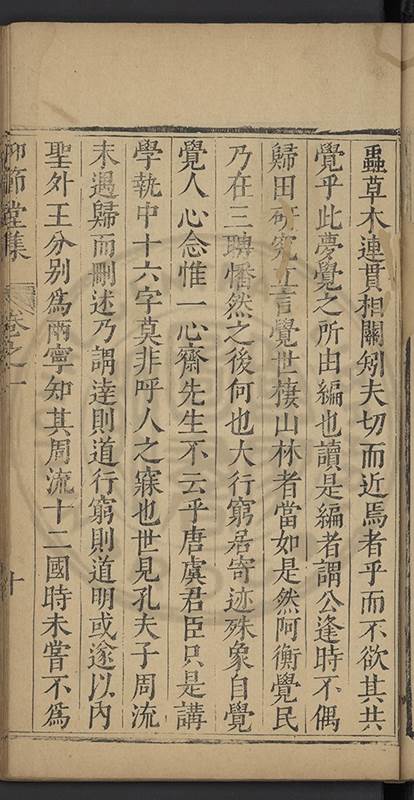 蟲草木連貫相關矧夫切而近焉者乎而不欲其共
覺乎此夢覺之所由編也讀是編者謂公逢時不偶
歸田研究立言覺世棲山林者當如是然阿衡覺民
乃在三聘幡然之後何也大行窮居寄迹殊象自覺
覺人心念惟一心齋先生不云乎唐虞君臣只是講
學執中十六字莫非呼人之寐也世見孔夫子周流
未遇歸而刪述乃謂達則道行窮則道明或遂以內
聖外王分別爲兩寧知其周流十二國時未嘗不爲
仰節堂集 卷之一 十